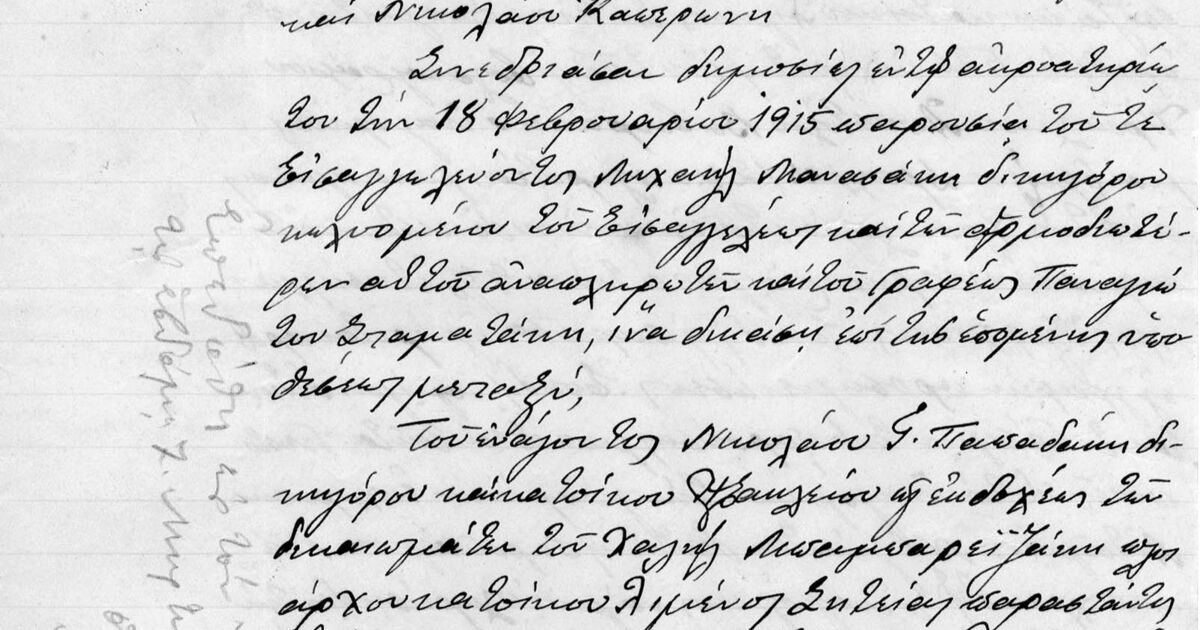 καὶ Νικολάου Καπερώνη
Συνεδριάσαν δημοσίᾳ ἐν τῷ ἀκροατηρίῳ
του τὴν 18 Φεβρουαρίου 1915 παρουσίᾳ τοῦ τε
Εἰσαγγελεύοντος Μιχαὴλ Μανασάκη δικηγόρου
κωλυομένου τοῦ Εἰσαγγελέως καὶ τῶν ἁρμοδιωτέ-
ρων αὐτοῦ ἀναπληρωτῶν καὶ τοῦ Γραφέως Παναγιώ
του Σταματάκη, ἵνα δικάσῃ ἐπὶ τῆς ἑπομένης ὑπο
θέσεως μεταξύ,
Τοῦ ἐνάγοντος Νικολάου Γ. Παπαδάκη δι-
κηγόρου καὶ κατοίκου Ἡρακλείου ὡς ἐκδοχέως τῶν
δικαιωμάτων τοῦ Χαλὴλ Μπαμπαρεϊζάκη πλοι
άρχου κατοίκου Λιμένος Σητείας παραστάντος